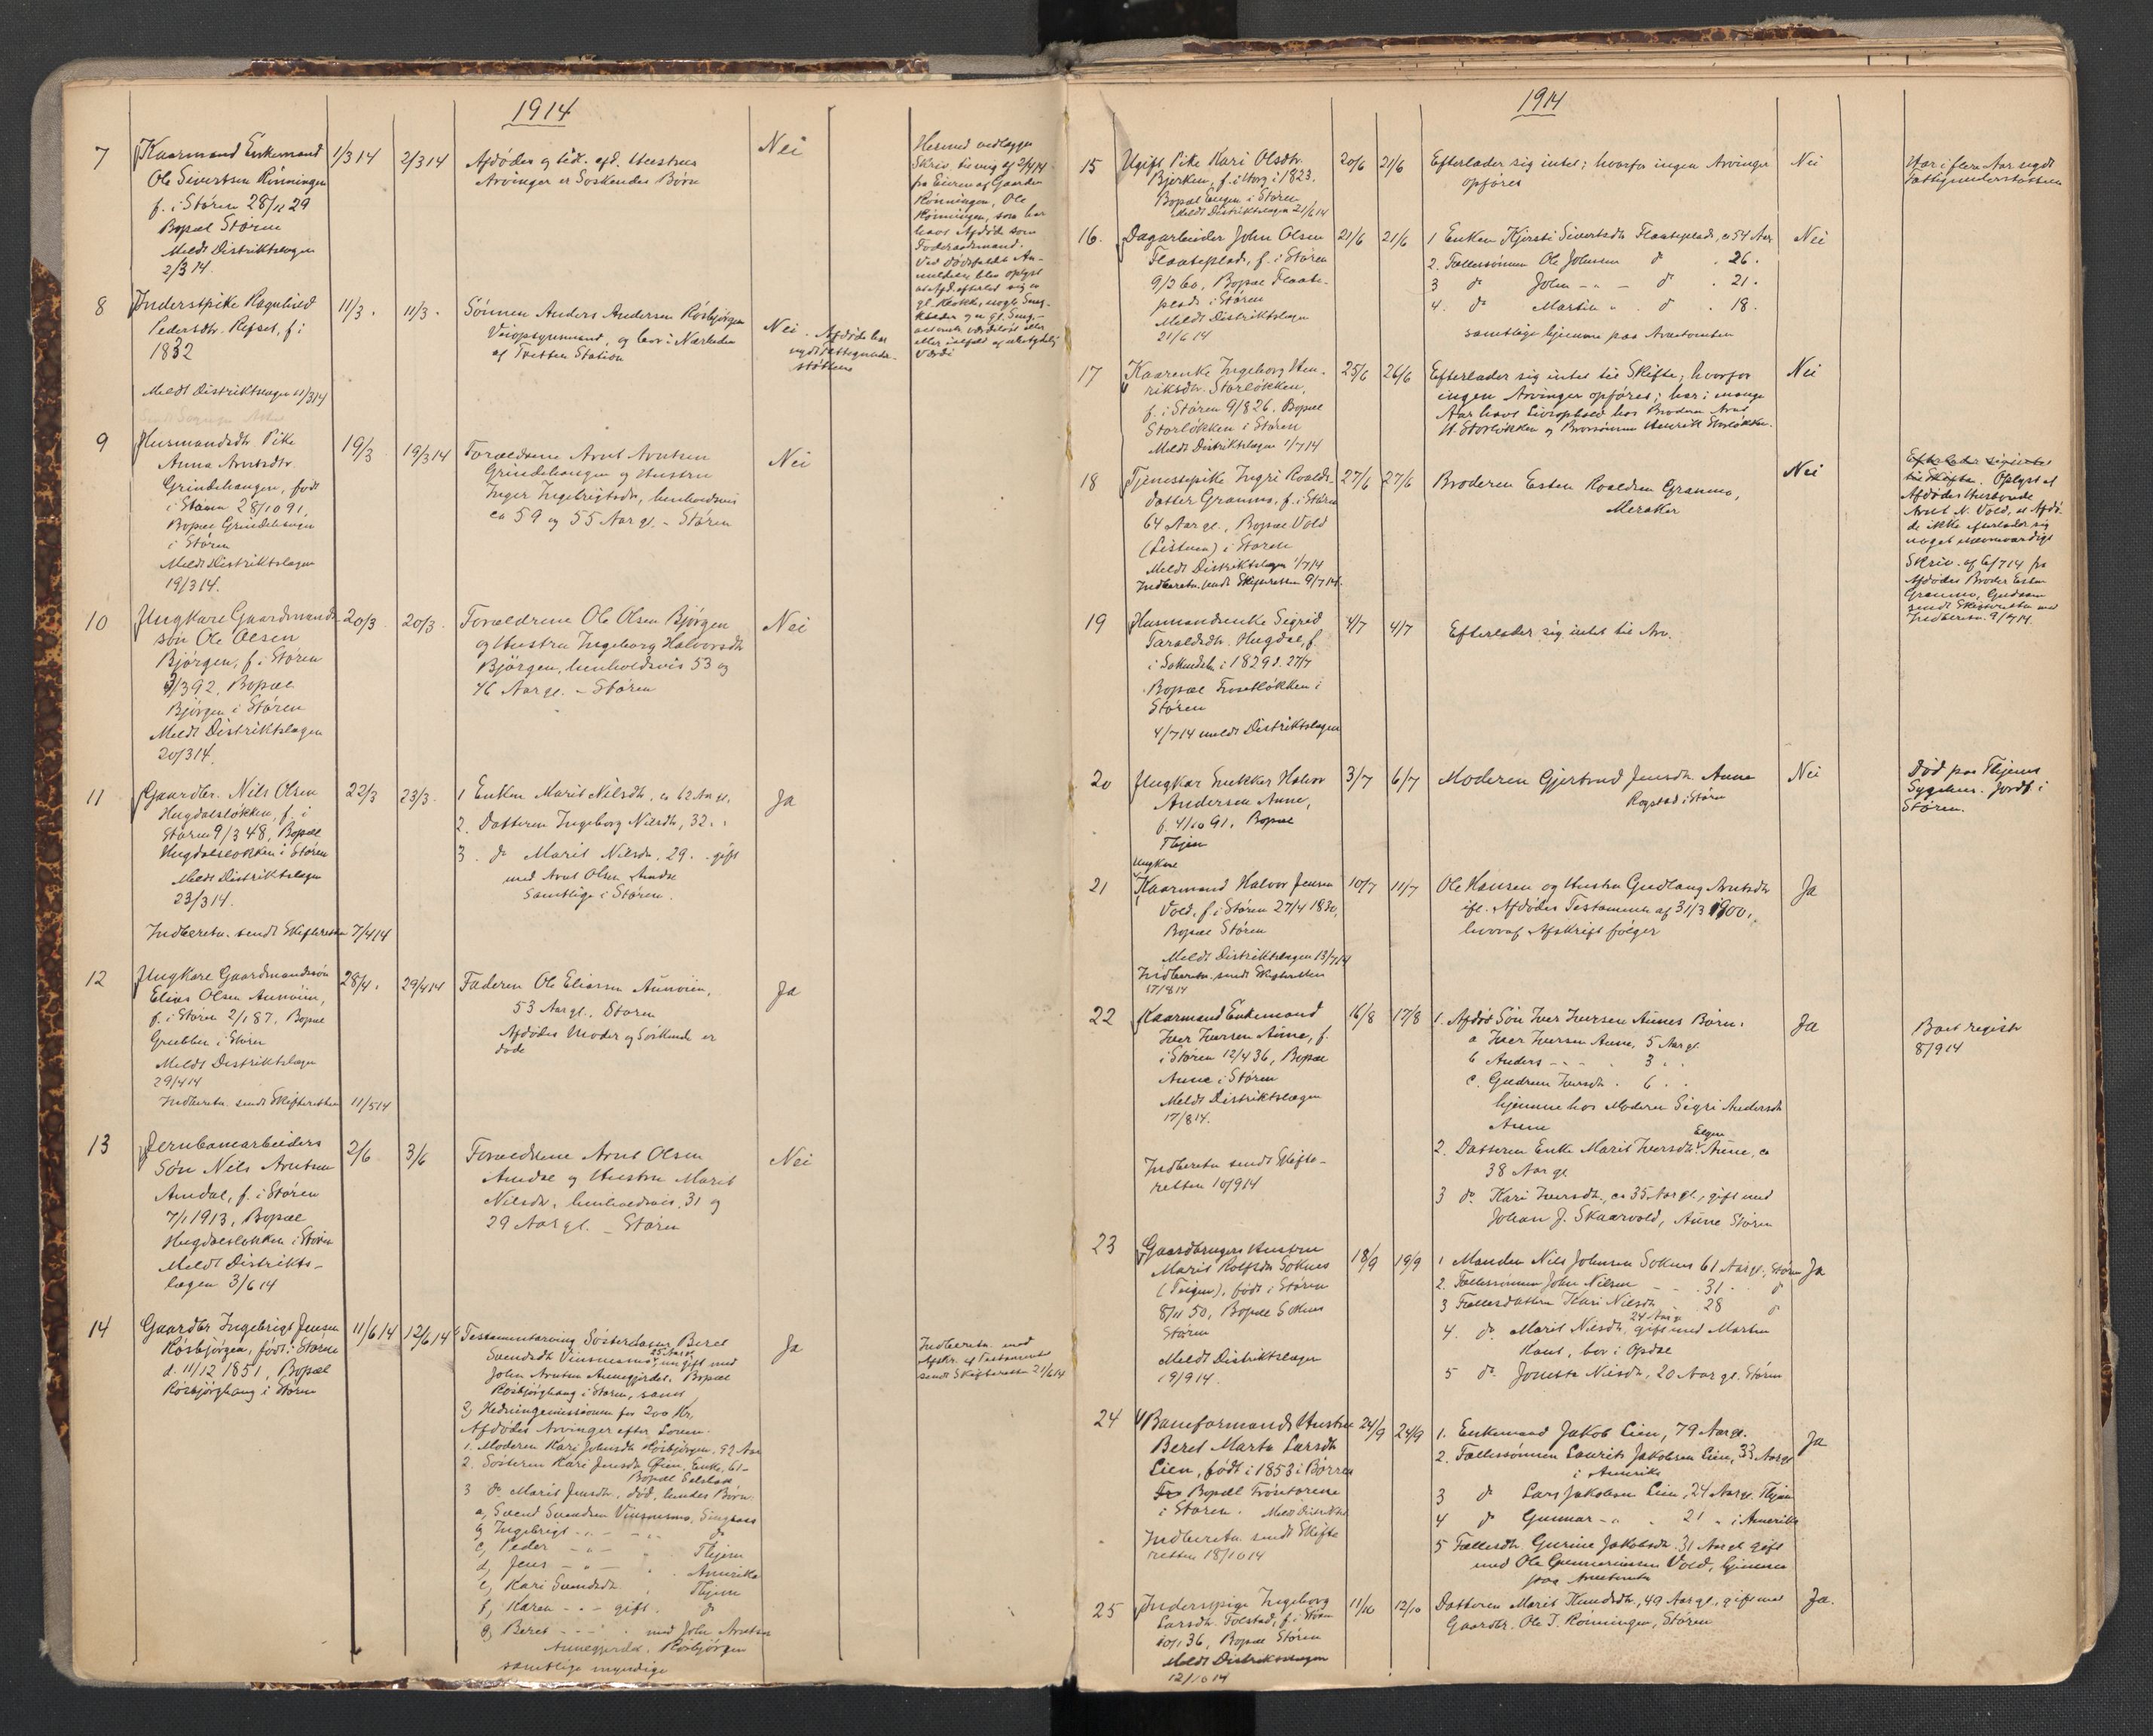 1914
7
Kaarmand Enkemand
Ole Sivertsen Rönningen
f. i Stören 28/12 29
Bopæl Stören
Meldt Distriktslægen
2/3 14.
1/3 14
2/3 14
Afdödes og tidl. afd. Hustrus
Arvinger er Söskendes Börn
Nei
Hermed vedlægges
Skriv. af 2/4 14
fra Eieren af Gaarden
Rönningen, Ole
Rönningen, som har
havt Afdöde som
Foderaadsmand.
Ved Dödsfaldets An-
meldelse blev oplyst
at Afd. efterlod sig en
gl. Klokke, nogle Seng-
klæder og en gl. Seng,
8
Inderstpike Ragnhild
Pedersdtr. Refset, f. i
1832
Meldt Distriktslægen 11/3 14
11/3 .
11/3 .
Sönnen Anders Andersen Rösbjörgen
Veiopsynsmand, og bor i Nærheden
af Tretten Station
Nei . Afdöde har
nydt Fattigunder-
stöttelse
9
Husmandsdtr Pike
Anna Arntsdtr.
Grindehaugen, född
i Stören 28/10 91,
Bopæl Grindehaugen
i Stören
Meldt Distriktslægen
19/3 14.
19/3
19/3 14
Forældrene Arnt Arntsen
Grindehaugen og Hustru
Inger Ingebrigtsdtr, henholdsvis
ca 59 og 55 Aar gl. - Stören
Nei
10
Ungkare Gaardmands
sön Ole Olsen
Björgen, f. i Stören
3/3 92, Bopæl
Björgen i Stören
Meldt Distriktslægen
20/3 14.
20/3
20/3.
Forældrene Ole Olsen Björgen
og Hustru Ingeborg Halvorsdtr
Björgen, henholdsvis 53 og
46 Aar gl. - Stören
Nei
11
Gaardbr. Nils Olsen
Hugdalslökken, f. i
Stören 9/3 48, Bopæl
Hugdalslökken i Stören
Meldt Distriktslægen
23/3 14.
Indberetn. sendt Skifteretten 7/4 14
22/3
23/3.
1 Enken Marit Nilsdtr, ca 62 Aar gl.
2. Datteren Ingeborg Nilsdtr, 32. .
3. do Marit Nilsdtr, 29. . gift
med Arnt Olsen Amdal
Samtlige i Stören.
Ja
12
Ungkare Gaardmandssön
Elias Olsen Aunöien,
f. i Stören 2/1 87, Bopæl
i Stören
Meldt Distriktslægen
29/4 14
Indberetn. sendt Skifteretten 11/5 14
28/4.
29/4 14
Faderen Ole Eliassen Aunöien,
53 Aar gl., Stören
Afdödes Moder og Söskende er
döde
Ja
13
Jernbanearbeiders
Sön Nils Arntsen
Amdal, f. i Stören
7/1 1913, Bopæl
Hugdalslökken i Stören
Meldt Distrikts-
lægen 3/6 14
2/6
3/6
Forældrene Arnt Olsen
Amdal og Hustru Marit
Nilsdtr, henholdsvis 31 og
29 Aar gl. - Stören
Nei
14
Gaardbr Ingebrigt Jensen
Rösbjörgen, född i Stören
d. 11/12 1851, Bopæl
Rösbjörghaug i Stören
11/6 14
12/6 14
Testamentarving Sösterdatter Beret
Svendsdtr Vinsnesmo, 25 Aar gl. gift med
John Arntsen Aunegjerdet, Bopæl
Rösbjörghaug i Stören, samt
2) Hedningemissionen for 200 Kr.
Afdödes Arvinger efter Loven.
1. Moderen Kari Johnsdtr Rösbjörgen, 92 Aar
2. Sösteren Kari Jensdtr Öien, Enke, 61 -
Bopæl
3 do Marit Jensdtr, död, hendes Börn:
a, Svend Svendsen Vinsnesmo, Singsaas
b, Ingebrigt - - - do
c, Peder - - - Thjem
d, Jens - - - Amerika
e, Kari Svendsdtr. Thjem
f, Karen - - gift. do
g, Beret - - - med John Arntsen
Aunegjerdet, Rösbjörgen
samtlige myndige
Ja
Indberetn. med
Afskr. af Testamentet
sendt Skifteretten 21/6 14
1914
15
Ugift Pike Kari Olsdtr.
Bjerken, f. i Horg i 1823.
Bopæl Engen i Stören
Meldt Distriktslægen 21/6 14
20/6
21/6
Efterlader sig intet; hvorfor ingen Arvinger
opföres
Nei
Har i flere Aar nydt
Fattigunderstöttelse
16.
Dagarbeider John Olsen
Flaateplads, f. i Stören
9/3 60, Bopæl Flaate-
plads i Stören
Meldt Distriktslægen
21/6 14
21/6
21/6
1 Enken Kjersti Sivertsdtr Flaateplads, ca 54 Aar
2. Fællessönnen Ole Johnsen do . 26.
3 do John - - - do . 21.
4. do Martin " . do . 18.
samtlige hjemme paa Arnestomten
Nei
17
Kaarenke Ingeborg Hen-
riksdtr. Storlökken,
f. i Stören 9/8 26, Bopæl
Storlökken i Stören
Meldt Distriktslægen 1/7 14
25/6
26/6
Efterlader sig intet til Skifte; hvorfor
ingen Arvinger opföres; har i mange
Aar havt Livsophold hos Broderen Arnt
H. Storlökken og Brorsönnen Henrik Storlökken.
Nei
18
Tjenestepike Ingri Roalds-
datter Granmo, f. i Stören
64 Aar gl., Bopæl Vold
i Stören
Meldt Distriktslægen 1/7 14
Indberetn. sendt Skifteretten 9/7 14.
27/6
27/6
Broderen Esten Roaldsen Granmo,
Meraker
Nei
Efterlader sig intet
til Skifte. Oplyst af
Afdödes Husbonde
Arnt N. Vold, at Afdö-
de ikke efterlader sig
noget nævneværdigt
Skriv. af 6/7 14 fra
Afdödes Broder Esten
Granmo,
sendt Skifteretten med
Indberetn. 9/7 14.
19
Husmandsenke Sigrid
Taraldsdtr. Hugdal, f.
i Soknedalen i 1829 d. 27/7
Bopæl i
Stören
4/7 14 meldt Distriktslægen
4/7
4/7
Efterlader sig intet til Arv.
20
Ungkar Snekker Halvor
Andersen Aune,
f. 4/10 91. Bopæl
Thjem
3/7
6/7
Moderen Gjertrud Jensdtr. Aune
Rogstad i Stören
Nei
Död paa Thjems
Sygehus. Jordf. i
Stören.
21
Ungkare
Kaarmand Halvor Jensen
Vold, f. i Stören 27/4 1830,
Bopæl Stören
Meldt Distriktslægen 13/7 14
Indberetn. sendt Skifteretten
17/8 14
10/7
11/7
Ole Hansen og Hustru Gudlaug Arntsdtr
ifl. Afdödes Testamente af 31/3 1900,
hvoraf Afskrift fölger
Ja
22
Kaarmand Enkemand
Iver Iversen Aune, f.
i Stören 12/4 36, Bopæl
Aune i Stören
Meldt Distriktslægen
17/8 14.
Indberetn sendt Skifte-
retten 10/9 14
16/8
17/8
1. Afdöd Sön Iver Iversen Aunes Börn:
a Iver Iversen Aune, 5 Aar gl.
b Anders - - - 3 . .
c. Gudrun Iversdtr . 6 . .
hjemme hos Moderen Sigri Andersdtr
Aune
2. Datteren Enke Marit Iversdtr Elgen Aune, ca
38 Aar gl.
3 do Kari Iversdtr, ca 35 Aar gl., gift med
Johan J. Skaarvold, Aune Stören
Ja
Boet registr
8/9 14
23
Gaardbrugers Hustru
Marit Rolfsdtr Soknes
född i Stören
8/11 50, Bopæl Soknes
Stören
Meldt Distriktslægen
19/9 14.
18/9
19/9
1 Manden Nils Johnsen Soknes 61 Aar gl., Stören
2. Fællessönnen John Nilsen - - 31 . do
3 Fællesdatteren Kari Nilsdtr . 28 do
4. do Marit Nilsdtr, 24 Aar gl. gift med Morten
bor i Opdal
5 do Nilsdtr, 20 Aar gl. Stören
Ja
24
Baneformands Hustru
Beret Marta Larsdtr
Lien, född i 1853 i Börsen
Bopæl
i Stören. Meldt Distriktsl
Indberetn sendt Skifte
retten 18/10 14
24/9
24/9
1. Enkemand Jakob Lien, 79 Aar gl.
2. Fællessönnen Laurits Jakobsen Lien, 33 Aar gl
i Amerika
3 do Lars Jakobsen Lien, 24 Aar gl. Thjem
4 do Gunnar - - " 21 " i Amerika
5 Fællesdtr. Gurine Jakobsdtr. 31 Aar gl gift
med Ole Vold, hjemme
paa Arnestomten
Ja
25
Inderstpige Ingeborg
Larsdtr. Tolstad, f. i Stören
10/1 36, Bopæl Stören
Meldt Distriktslægen
12/10 14
11/10
12/10
Datteren Marit Knudsdtr, 49 Aar gl, gift med
Gaardbr. Ole I. Rönningen, Stören
Ja.